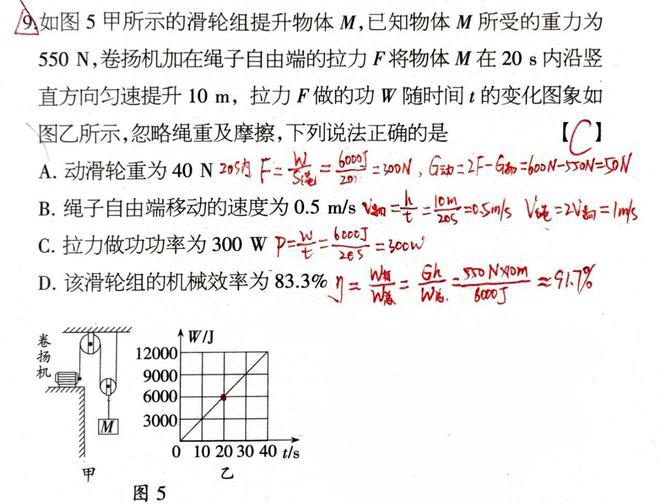 9.如图 5 甲所示的滑轮组提升物体 M,已知物体 M 所受的重力为
550 N,卷扬机加在绳子自由端的拉力 F 将物体 M 在 20 s 内沿竖
直方向匀速提升 10 m，拉力 F 做的功 W 随时间 t 的变化图象如
图乙所示,忽略绳重及摩擦,下列说法正确的是 【C】
A. 动滑轮重为 40 N 20s内 F=W/S绳=6000J/20m=300N，G动=2F-G物=600N-550N=50N
B. 绳子自由端移动的速度为 0.5 m/s V物=h/t=10m/20s=0.5m/s V绳=2V物=1m/s
C. 拉力做功功率为 300 W P=W/t=6000J/20s=300W
D. 该滑轮组的机械效率为 83.3% η=W有/W总=Gh/W总=550N×10m/6000J≈91.7%
卷扬机
M
甲
W/J
12000
9000
6000
3000
0 10 20 30 40 t/s
乙
图 5